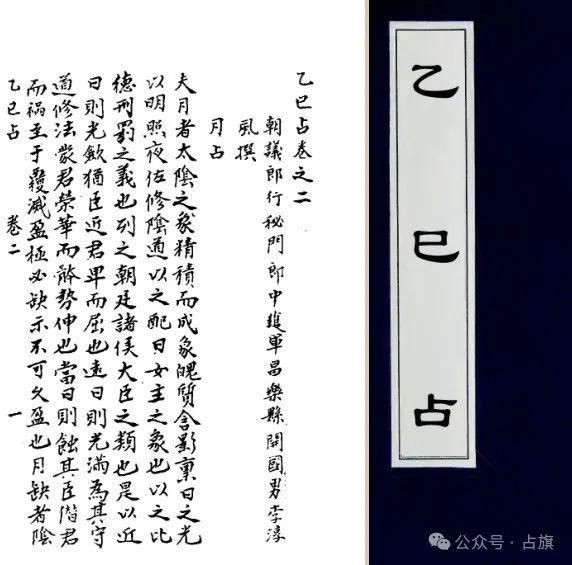 乙巳占卷之二
朝議郎行秘門郎中護軍昌樂縣開國男李淳
風撰
月占
夫月者太陰之象精積而成象魄質含影稟日之光
以明照夜佐修陰道以之配日女主之象也以之比
德刑罰之義也列之朝廷諸侯大臣之類也是以近
日則光斂猶臣近君卑而屈也遠日則光滿為其守
道修法蒙君榮華而體勢伸也當日則蝕其臣僭君
而禍至于覆滅盈極必缺示不可久盈也月缺者陰
乙巳占 卷二 一
乙巳占
公众号·占旗